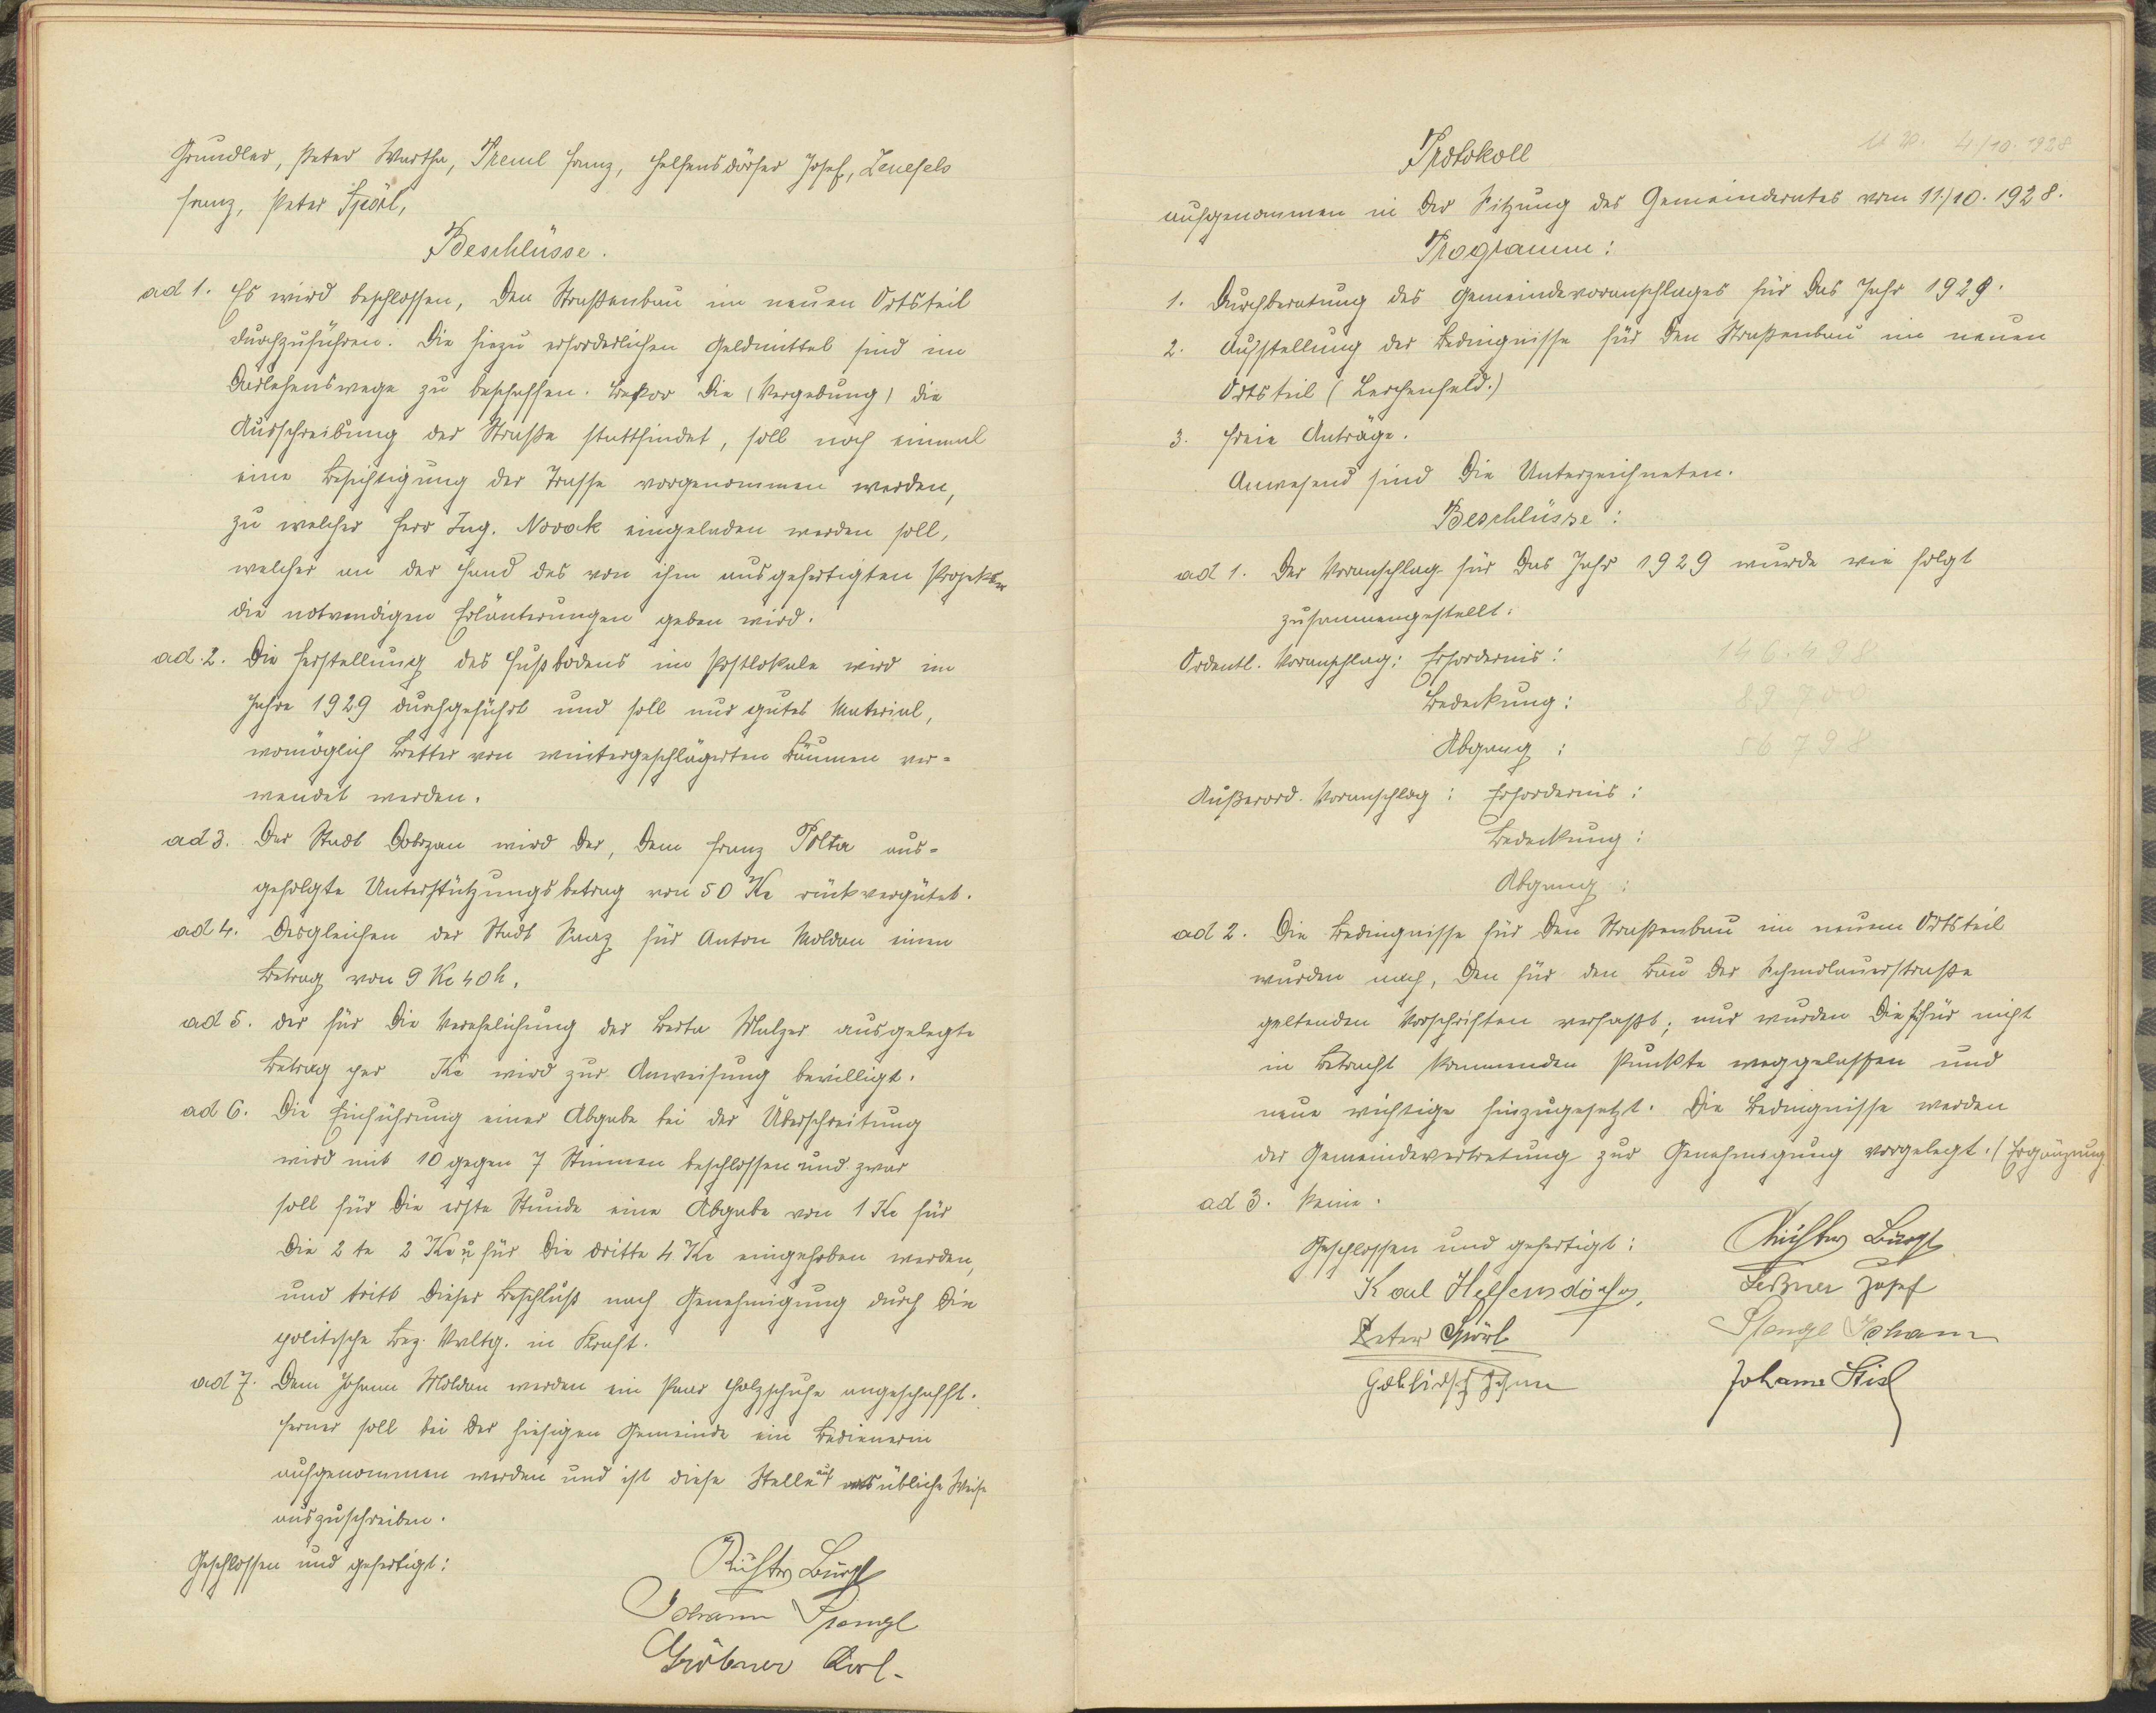 Grundler, Peter Wartha, Treml Franz, Helfensdörfer Josef, Lenefels
Franz, Peter Spörl,
Beschlüsse.
ad 1. Es wird beschlossen, den Straßenbau im neuen Ortsteil
durchzuführen. Die hiezu erforderlichen Geldmittel sind im
Darlehenswege zu beschaffen. Bevor die (Vergebung) die
Ausschreibung der Straße stattfindet, soll noch einmal
eine Besichtigung der Trasse vorgenommen werden,
zu welcher Herr Ing. Novak eingeladen werden soll,
welcher an der Hand des von ihm ausgefertigten Projektes
die notwendigen Erläuterungen geben wird.
ad. 2. Die Herstellung des Fußbodens im Postlokale wird im
Jahre 1929 durchgeführt und soll nur gutes Material,
womöglich Bretter von wintergeschlägerten Bäumen ver-
wendet werden.
ad 3. Der Stadt Dobrzan wird der, dem Franz Polta aus-
gefolgte Unterstützungsbetrag von 50 Kc rückvergütet.
ad 4. Desgleichen der Stadt Saaz für Anton Moldan einen
Betrag von 9 Kc 40 h.
ad 5. der für die Verehelichung der Berta Malzer ausgelegte
Betrag per Kc wird zur Anweisung bewilligt.
ad 6. Die Einführung einer Abgabe bei der Überschreitung
wird mit 10 gegen 7 Stimmen beschlossen und zwar
soll für die erste Stunde eine Abgabe von 1 Kc für
die 2 te 2 Kc u. für die dritte 4 Kc eingehoben werden,
und tritt dieser Beschluß nach Genehmigung durch die
politische Bez. Vwltg. in Kraft.
ad 7. Dem Johann Moldan werden ein Paar Holzschuhe angeschafft.
Ferner soll bei der hiesigen Gemeinde ein Bedienerin
aufgenommen werden und ist diese Stelle auf ortsübliche Weise
auszuschreiben.
Geschlossen und gefertigt:
Richter Bürgst
Johann Stangl
Gröbner Karl
Protokoll
4./10. 1928
aufgenommen in der Sitzung des Gemeinderates vom 11./10. 1928.
Programm:
1. Durchberatung des Gemeindevoranschlages für das Jahr 1929.
2. Aufstellung der Bedingnisse für den Straßenbau im neuen
Ortsteil (Lerchenfeld.)
3. Freie Anträge.
Anwesend sind die Unterzeichneten.
Beschlüsse:
ad 1. Der Voranschlag für das Jahr 1929 wurde wie folgt
zusammengestellt:
Ordentl. Voranschlag: Erfordernis: 146.498
Bedeckung: 89 700
Abgang: 56 798
Außerord. Voranschlag: Erfordernis:
Bedeckung:
Abgang:
ad 2. Die Bedingnisse für den Straßenbau im neuen Ortsteil
wurden nach, den für den Bau der Schmolauerstraße
geltenden Vorschriften verfaßt; nur wurden die hiefür nicht
in Betracht kommenden Punkte weggelassen und
neue wichtige hinzugesetzt. Die Bedingnisse werden
der Gemeindevertretung zur Genehmigung vorgelegt. (Ergänzung
ad 3. Keine.
Geschlossen und gefertigt:
Richter Bürgst
Karl Helfensdörfer,
Leßner Josef
Peter Spörl
Stangl Johann
Johann Stisl